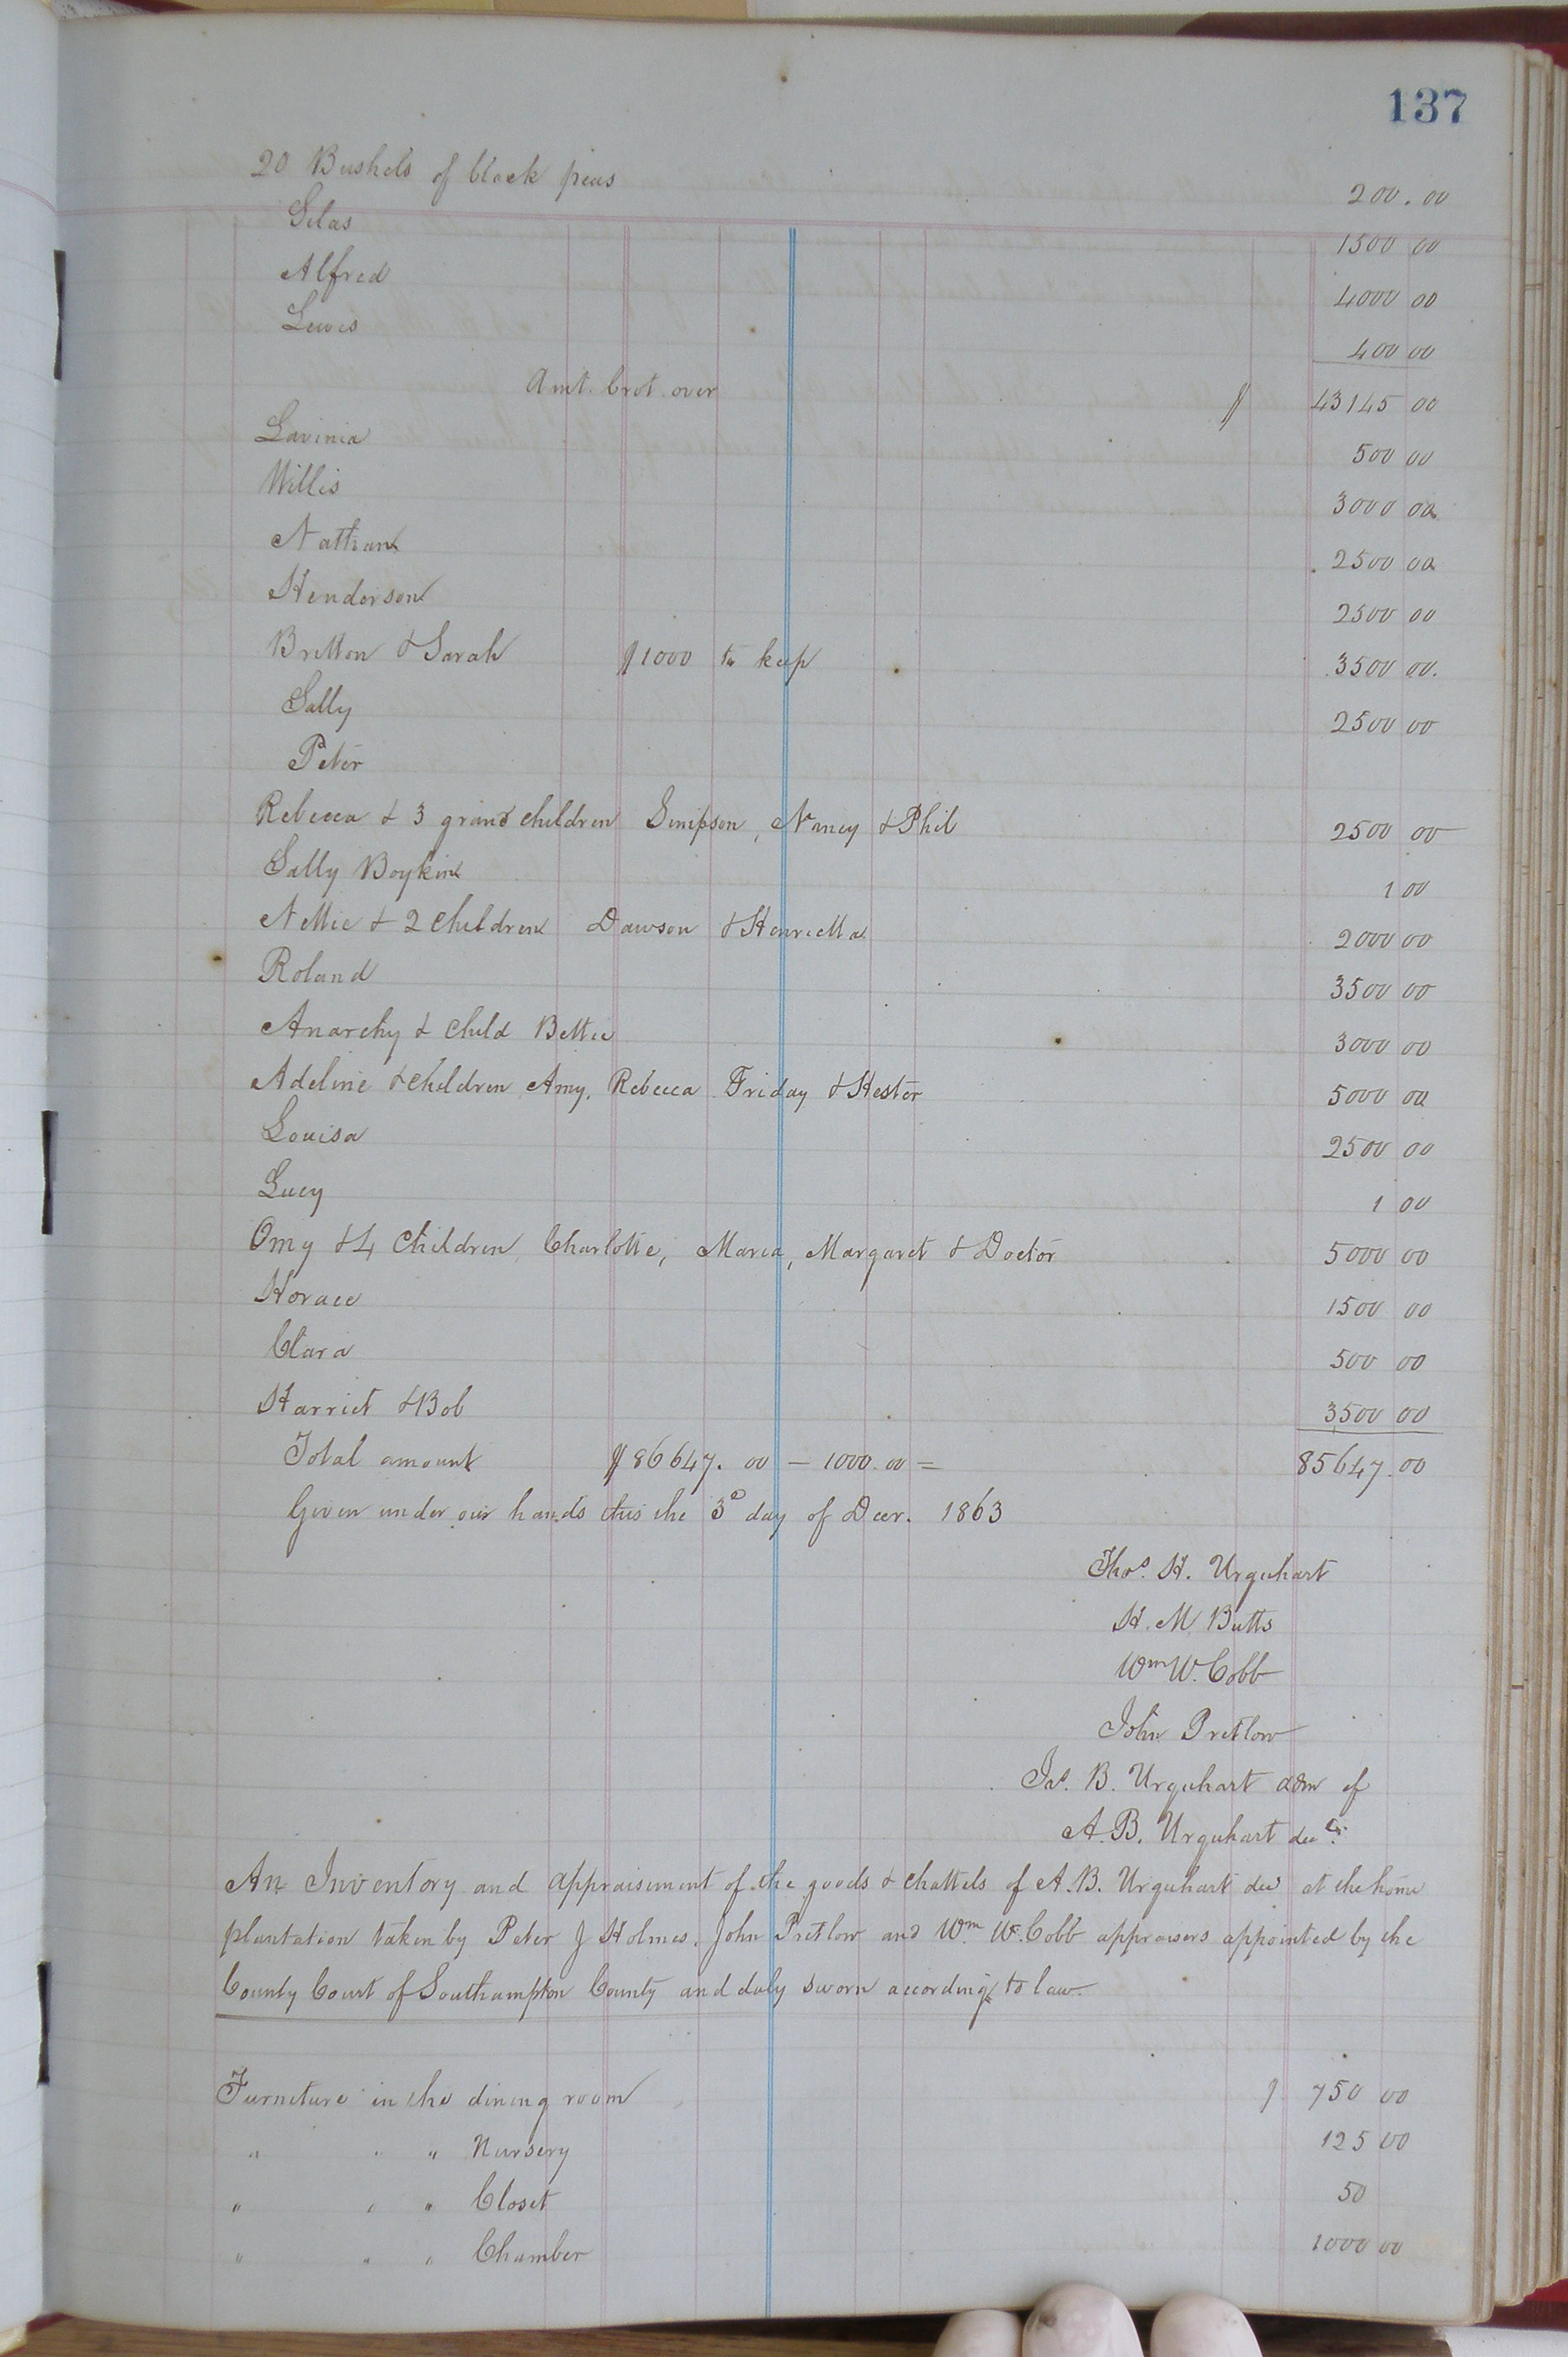 137
20 Bushels of black peas 200.00
Silas 1500 00
Alfred 4000 00
Lewis 400 00
Amt. brot. over $ 43145 00
Lavinia 500 00
Willis 3000 00
Nathan 2500 00
Henderson 2500 00
Britton & Sarah $1000 to keep 3500 00.
Sally 2500 00
Peter
Rebecca & 3 grand children Simpson, Nancy & Phil 2500 00
Sally Boykin 1 00
Nettie & 2 Children Dawson & Henrietta 2000 00
Roland 3500 00
Anarchy & Child Bettie 3000 00
Adeline & children Amy, Rebecca Friday & Hester 5000 00
Louisa 2500 00
Lucy 1 00
Omy & 4 Children Charlotte, Maria, Margaret & Doctor 5000 00
Horace 1500 00
Clara 500 00
Harriet & Bob 3500 00
Total amount $86647.00 — 1000.00 = 85647.00
Given under our hands this the 3d day of Decr. 1863
Thos. H. Urquhart
H. M. Butts
Wm W. Cobb
John Pretlow
Jas. B. Urquhart adm of
A. B. Urquhart decd.
An Inventory and appraisement of the goods & chattels of A. B. Urquhart decd at the home
plantation taken by Peter J Holmes, John Pretlow and Wm. W. Cobb appraisers appointed by the
County Court of Southampton County and duly sworn according to law.
Furniture in the dining room $ 750 00
" " " Nursery 125 00
" " " Closet 50
" " " Chamber 1000 00